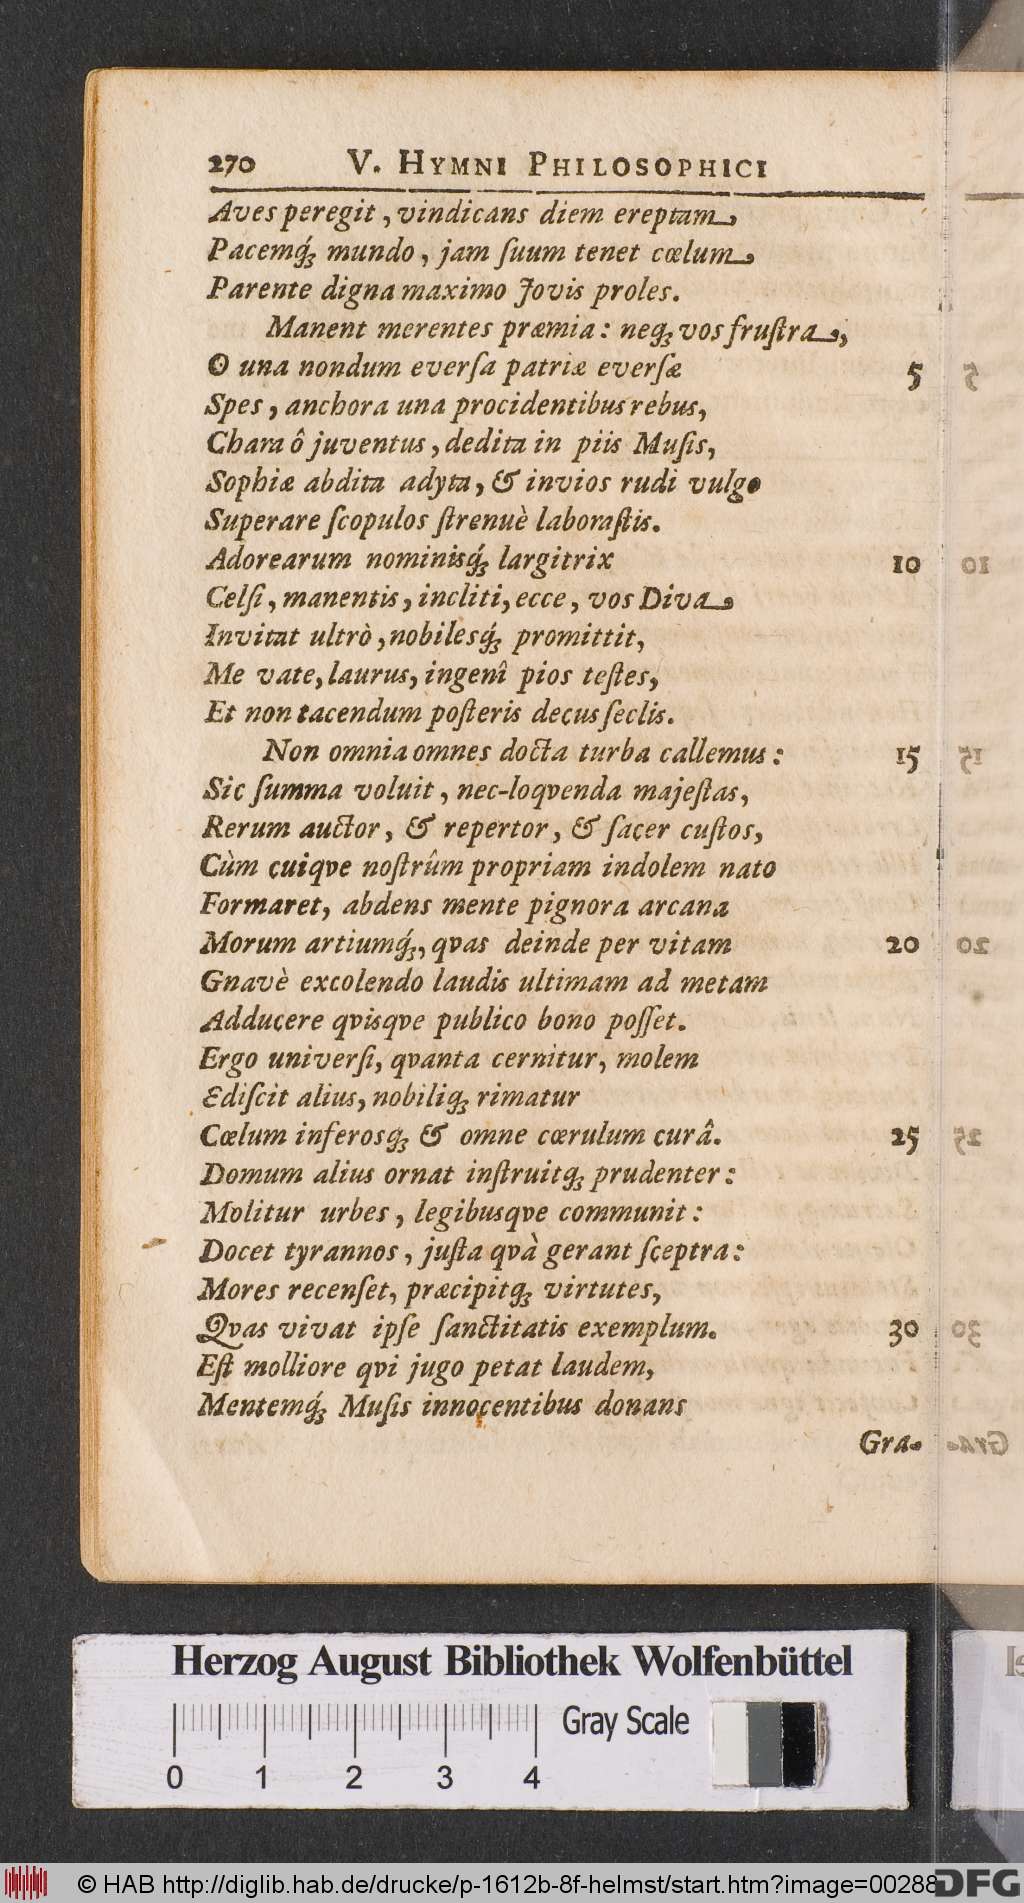 270 V. HYMNI PHILOSOPHICI
Aves peregit, vindicans diem ereptam,
Pacemq́ꝫ mundo, jam ſuum tenet cœlum,
Parente digna maximo Jovis proles.
Manent merentes præmia: neqꝫ vos fruſtra,
O una nondum everſa patriæ everſæ 5
Spes, anchora una procidentibus rebus,
Chara ô juventus, dedita in piis Muſis,
Sophiæ abdita adyta, & invios rudi vulgo
Superare ſcopulos ſtrenuè laboraſtis.
Adorearum nominisq́ꝫ largitrix 10
Celſi, manentis, incliti, ecce, vos Diva,
Invitat ultrò, nobilesq́ꝫ promittit,
Me vate, laurus, ingenî pios teſtes,
Et non tacendum poſteris decus ſeclis.
Non omnia omnes docta turba callemus: 15
Sic ſumma voluit, nec-loqvenda majeſtas,
Rerum auctor, & repertor, & ſacer cuſtos,
Cùm cuiqve noſtrûm propriam indolem nato
Formaret, abdens mente pignora arcana
Morum artiumq́ꝫ, qvas deinde per vitam 20
Gnavè excolendo laudis ultimam ad metam
Adducere qvisqve publico bono poſſet.
Ergo univerſi, qvanta cernitur, molem
Ediſcit alius, nobiliqꝫ rimatur
Cœlum inferosqꝫ & omne cœrulum curâ. 25
Domum alius ornat inſtruitqꝫ prudenter:
Molitur urbes, legibusqve communit:
Docet tyrannos, juſta qvà gerant ſceptra:
Mores recenſet, præcipitqꝫ virtutes,
Qvas vivat ipſe ſanctitatis exemplum. 30
Eſt molliore qvi jugo petat laudem,
Mentemq́ꝫ Muſis innocentibus donans
Gra-
Herzog August Bibliothek Wolfenbüttel
Gray Scale
0 1 2 3 4
© HAB http://diglib.hab.de/drucke/p-1612b-8f-helmst/start.htm?image=00288
DFG